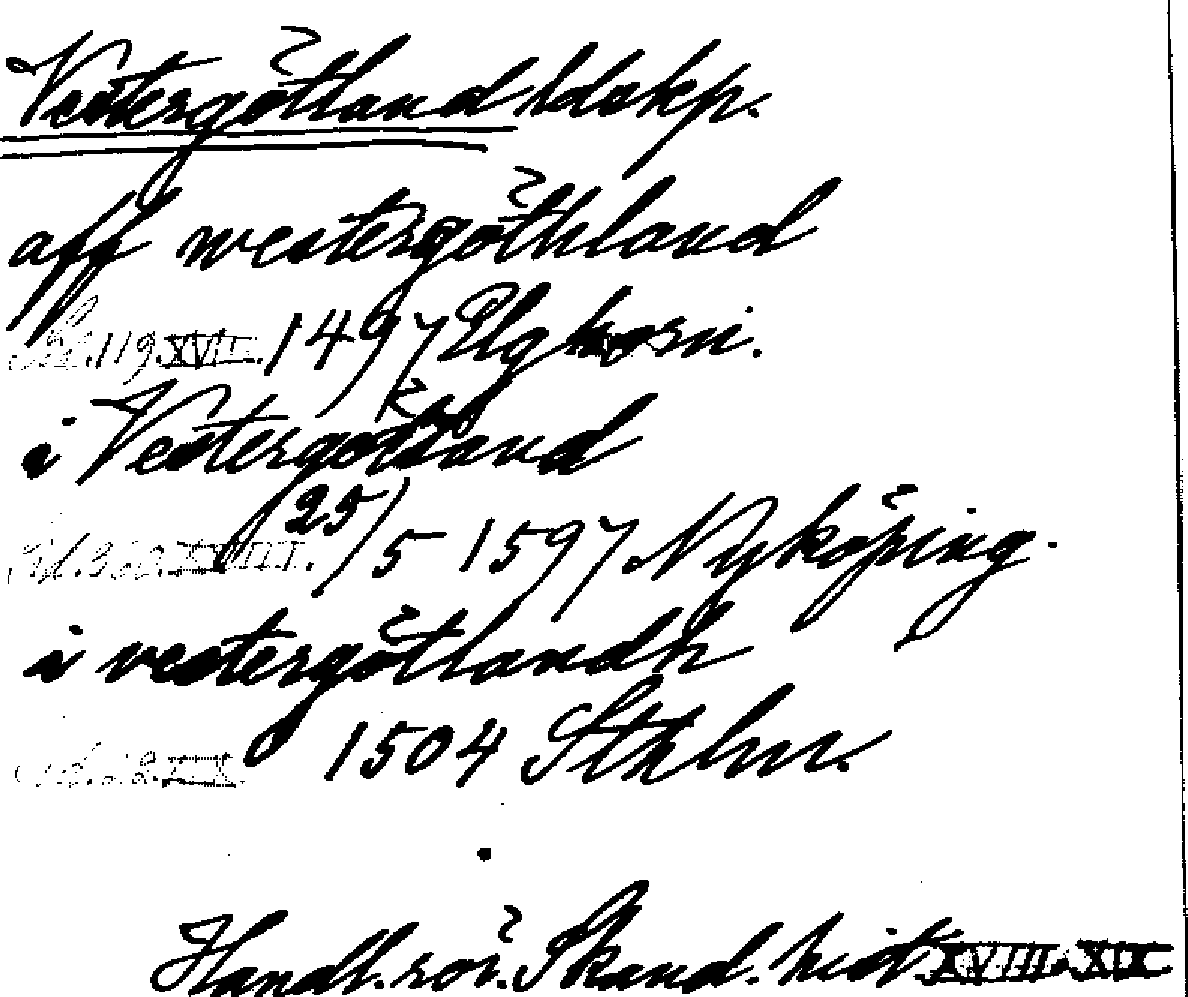 Vestergötland ldskp.
aff westergöthland
119 XVIII. 1497
i Vestergötland
25/5 1597 Nyköping.
i vestergötlandh
1504 Sthlm.
Handl. rör. Skand. hist. XVIII, XIX